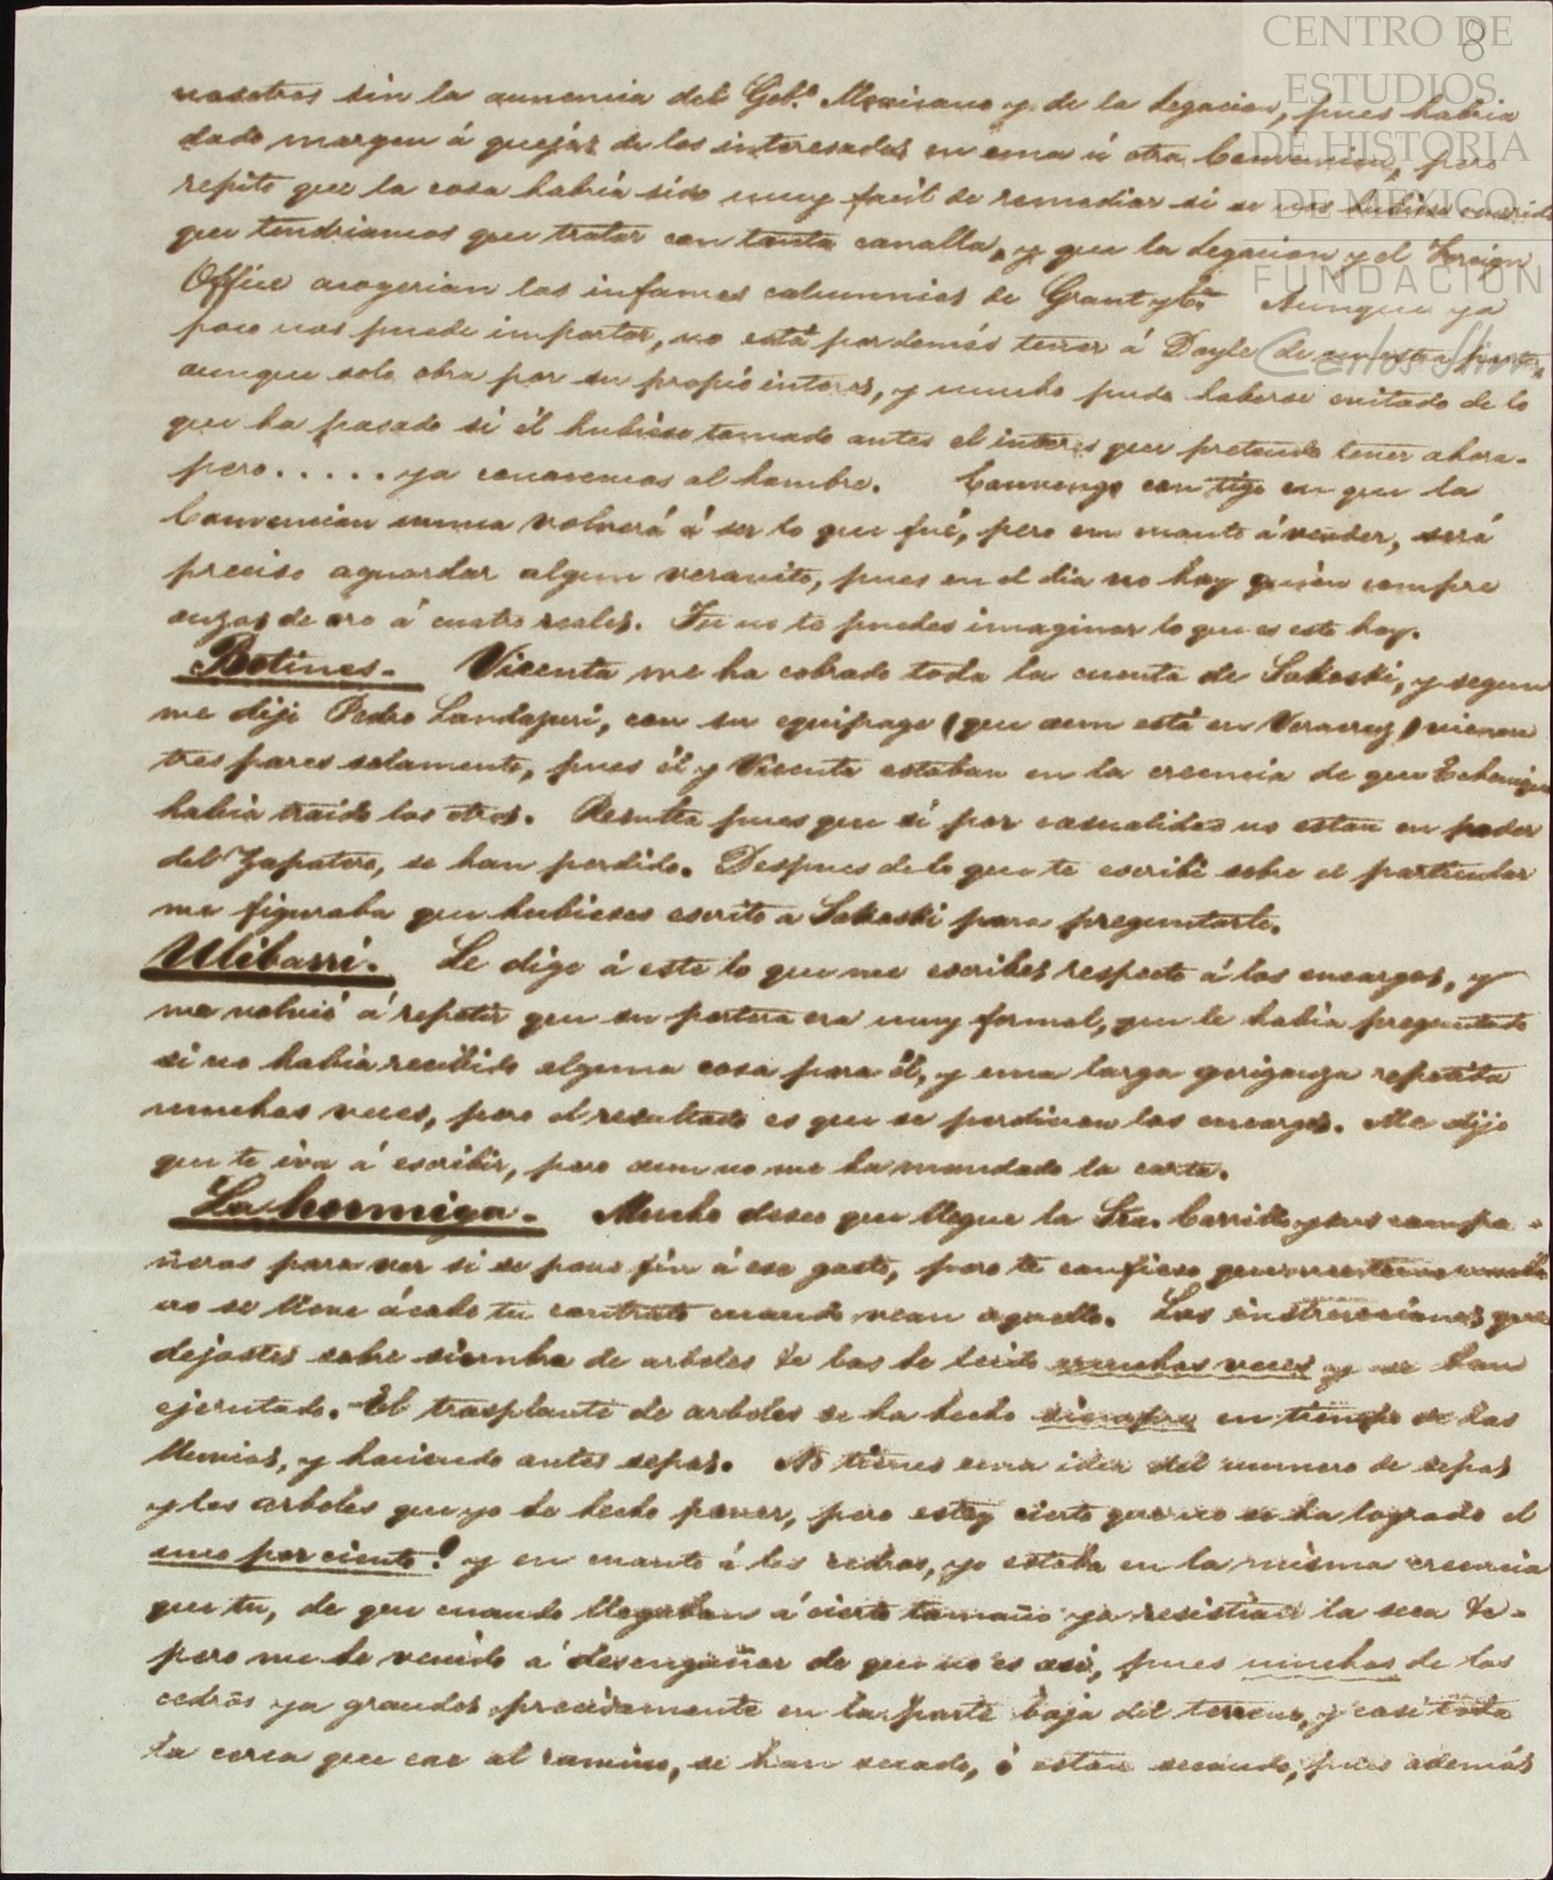 8
CENTRO DE
ESTUDIOS
DE HISTORIA
DE MEXICO
FUNDACIÓN
Carlos Slim
nosotros sin la anuencia del Gob.º Mexicano y de la Legacion, pues habria
dado margen á quejas de los interesados en una ú otra Convencion, pero
repito que la cosa habria sido muy facil de remediar si se nos hubiese
que tendriamos que tratar con tanta canalla, y que la Legacion y el Foreign
Office acogerian las infames calumnias de Grant y Cª. Aunque ya
poco nos puede importar, no está por demás tener á Doyle de nuestra parte,
aunque solo obra por su propio interes, y mucho pudo haberse evitado de lo
que ha pasado si él hubiese tomado antes el interes que pretende tener ahora.
pero..... ya conocemos al hombre. Convengo contigo en que la
Convencion nunca volverá á ser lo que fué, pero en cuanto á vender, será
preciso aguardar algun veranito, pues en el dia no hay quien compre
onzas de oro á cuatro reales. Tu no te puedes imaginar lo que es esto hoy.
Botines. Vicenta me ha cobrado toda la cuenta de Sakoski, y segun
me dijo Pedro Landazuri, con su equipage (que aun está en Veracruz) vienen
tres pares solamente, pues él y Vicente estaban en la creencia de que
habia traido los otros. Resulta pues que si por casualidad no estan en poder
del Zapatero, se han perdido. Despues de lo que te escribí sobre el particular
me figuraba que hubieses escrito a Sakoski para preguntarle.
Ulibarri. Le dige á este lo que me escribes respecto á los encargos, y
me volvió á repetir que su portera era muy formal, que le habia preguntado
si no habia recibido alguna cosa para él, y una larga gerigonza repetida
muchas veces, pero el resultado es que se perdieron los encargos. Me dijo
que te iva á escribir, pero aun no me ha mandado la carta.
La hormiga. Mucho deseo que llegue la Sra. Carrillo y sus compa-
ñeras para ver si se pone fin á ese gasto, pero te confieso que
no se lleve á cabo tu contrato cuando vean aquello. Las instrucciones que
dejastes sobre siembra de arboles &c las he leido muchas veces y se han
ejecutado. El trasplante de arboles se ha hecho siempre en tiempo de las
lluvias, y haciendo antes cepas. No tienes una idea del numero de cepas
y los arboles que yo he hecho poner, pero estoy cierto que no se ha logrado el
uno por ciento! y en cuanto á los cedros, yo estaba en la misma creencia
que tu, de que cuando llegaban á cierto tamaño ya resistian la seca &c.
pero me he venido á desengañar de que no es asi, pues muchos de los
cedros ya grandes precisamente en la parte baja del terreno, y casi toda
la cerca que cae al camino, se han secado, ó estan secando, pues además